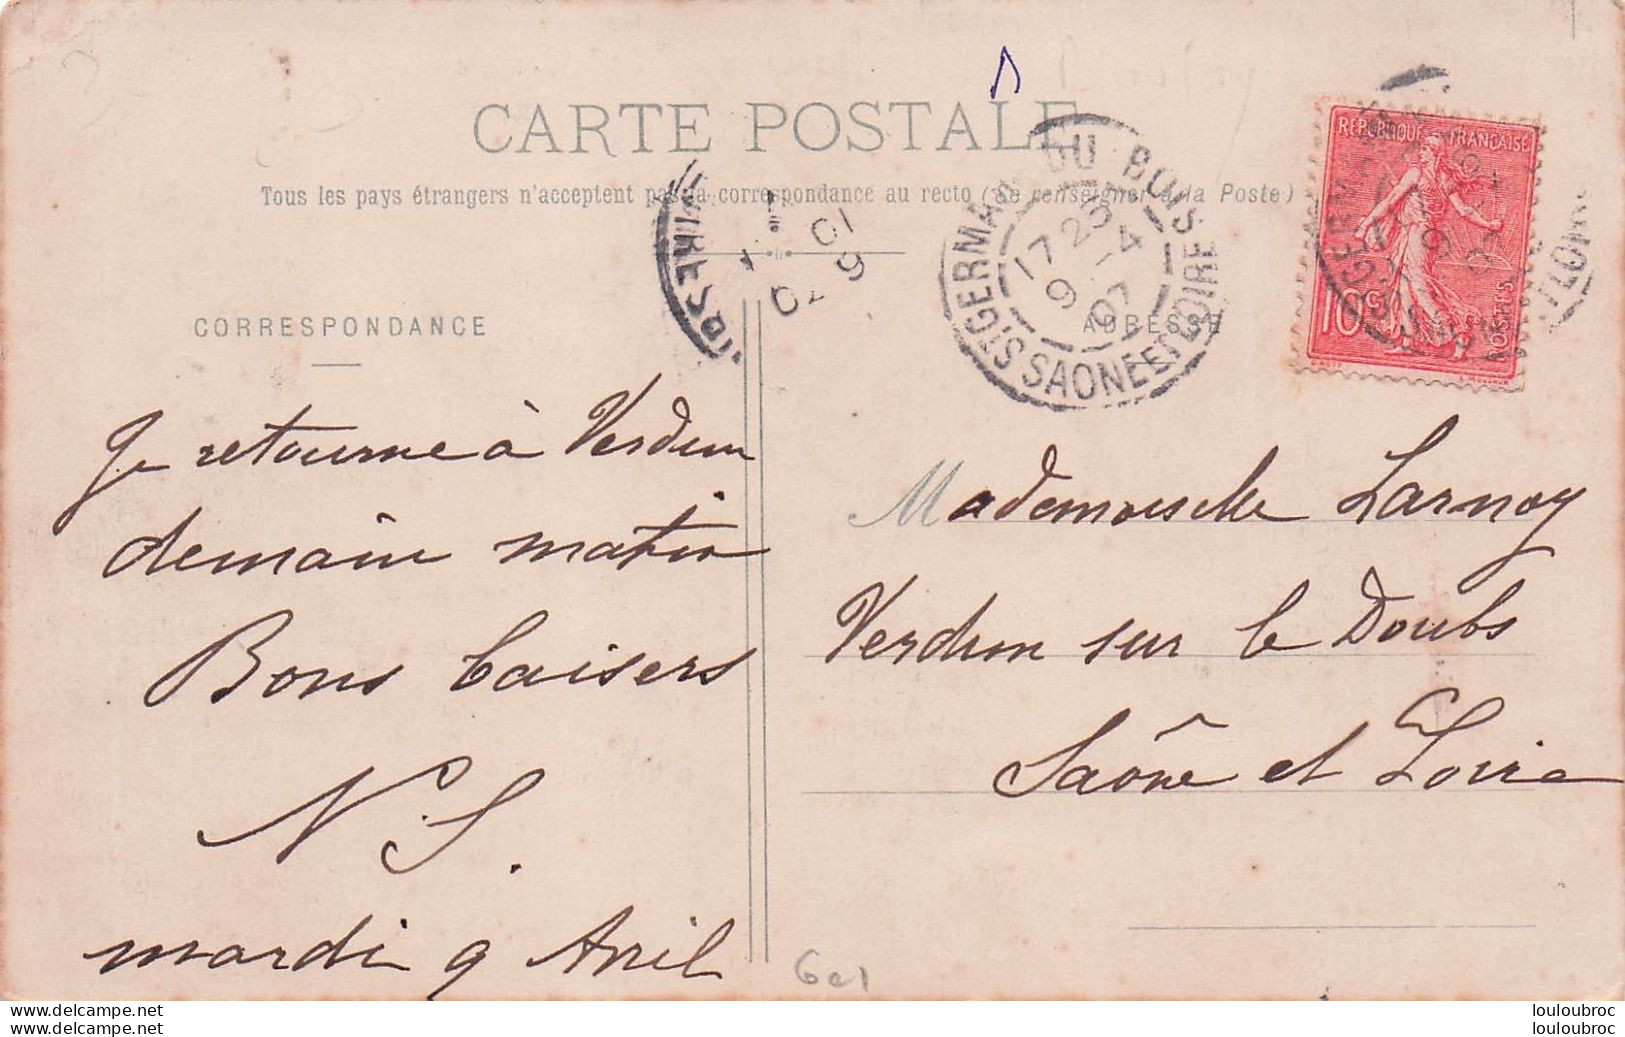 CARTE POSTALE
Tous les pays étrangers n'acceptent pas la correspondance au recto (Se renseigner à la Poste)
CORRESPONDANCE
Je retourne à Verdun
demain matin
Bons baisers
N. S.
mardi 9 Avril
ST GERMAIN DU BOIS
SAONE ET LOIRE
17 25
9 4
07
ADRESSE
REPUBLIQUE FRANÇAISE
10 c
POSTES
Mademoiselle Larnoy
Verdun sur le Doubs
Saône et Loire
delcampe.net
delcampe.net
louloubroc
louloubroc